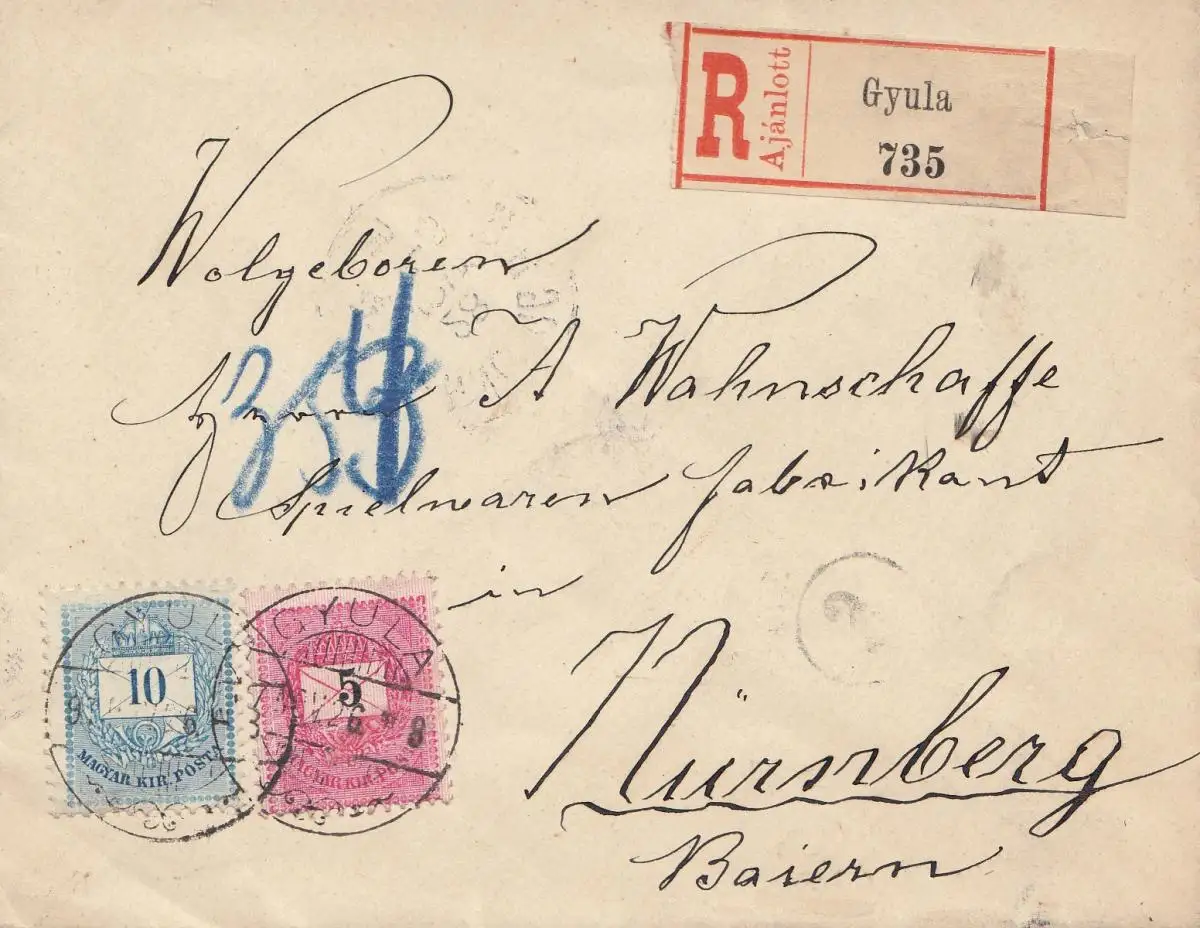 R Ajánlott
Gyula
735
Wolgeboren
Herrn A Wahnschaffe
Spielwaren fabrikant
in
Nürnberg
Baiern
GYULA
10
MAGYAR KIR. POSTA
GYULA
5
MAGYAR KIR. POSTA